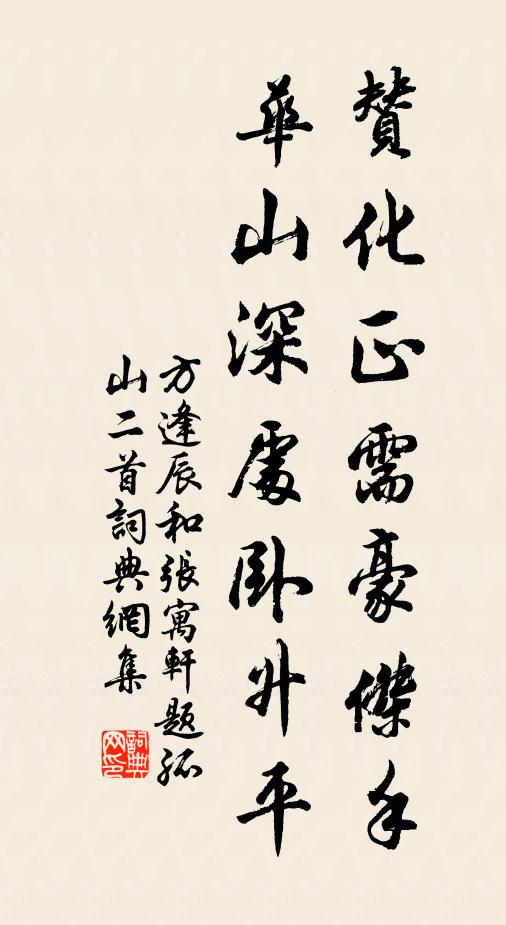 贊化正需豪傑手
華山深處卧升平
方逢辰和張寓軒題孤
山二首詞典網集
詞典網印